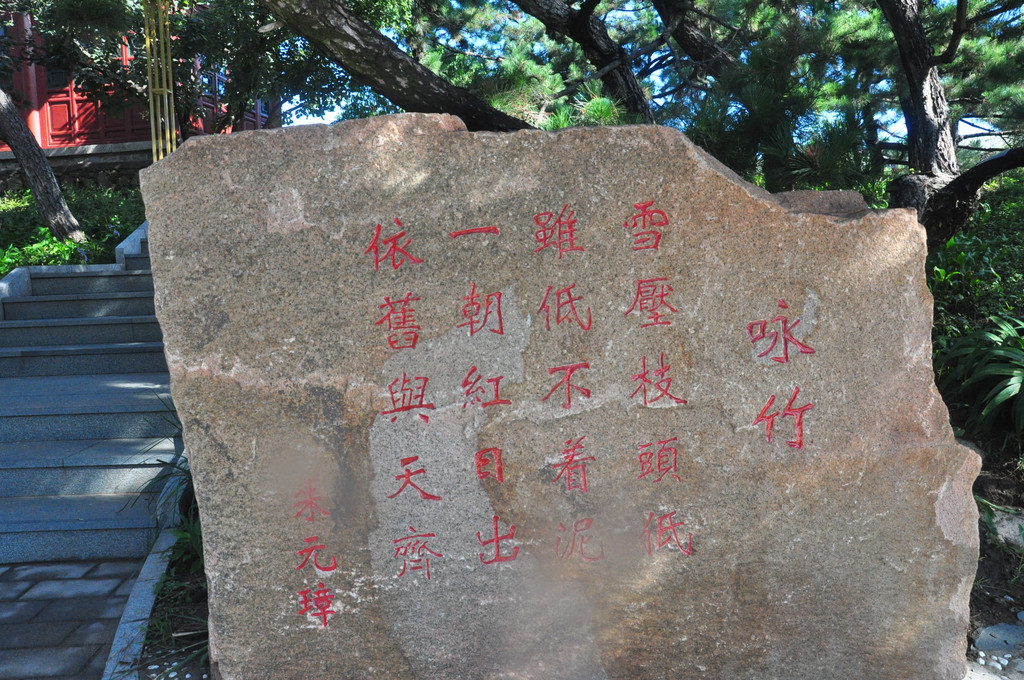 咏竹
雪壓枝頭低
雖低不着泥
一朝紅日出
依舊與天齊
朱元璋